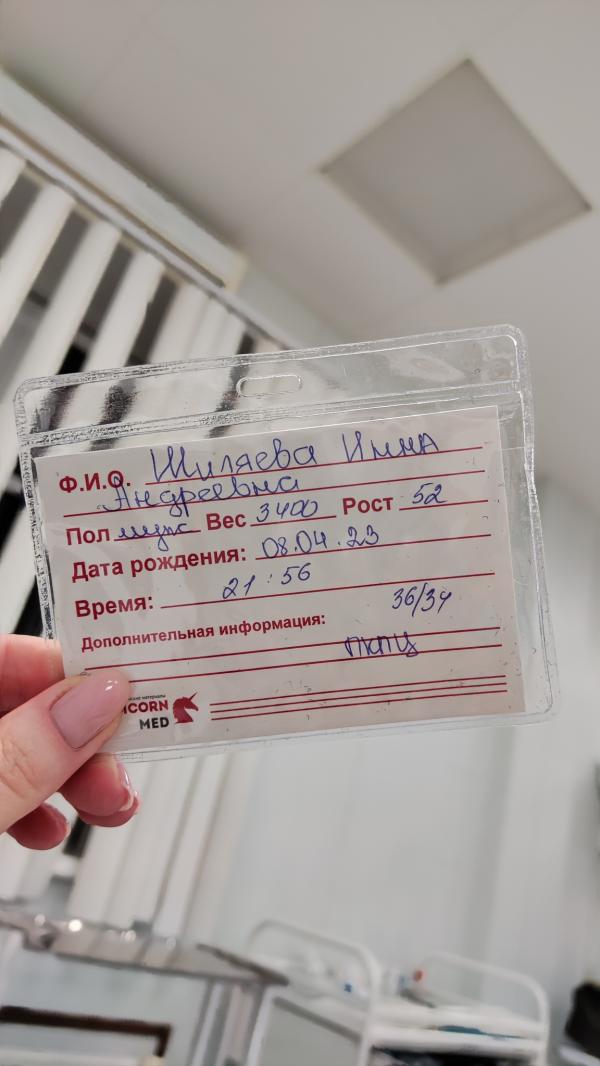 Ф.И.О. Шиляева Инна
Андреевна
Пол муж Вес 3400 Рост 52
Дата рождения: 08.04.23
Время: 21:56
36/34
Дополнительная информация:
ПКПЦ
ICORN
MED